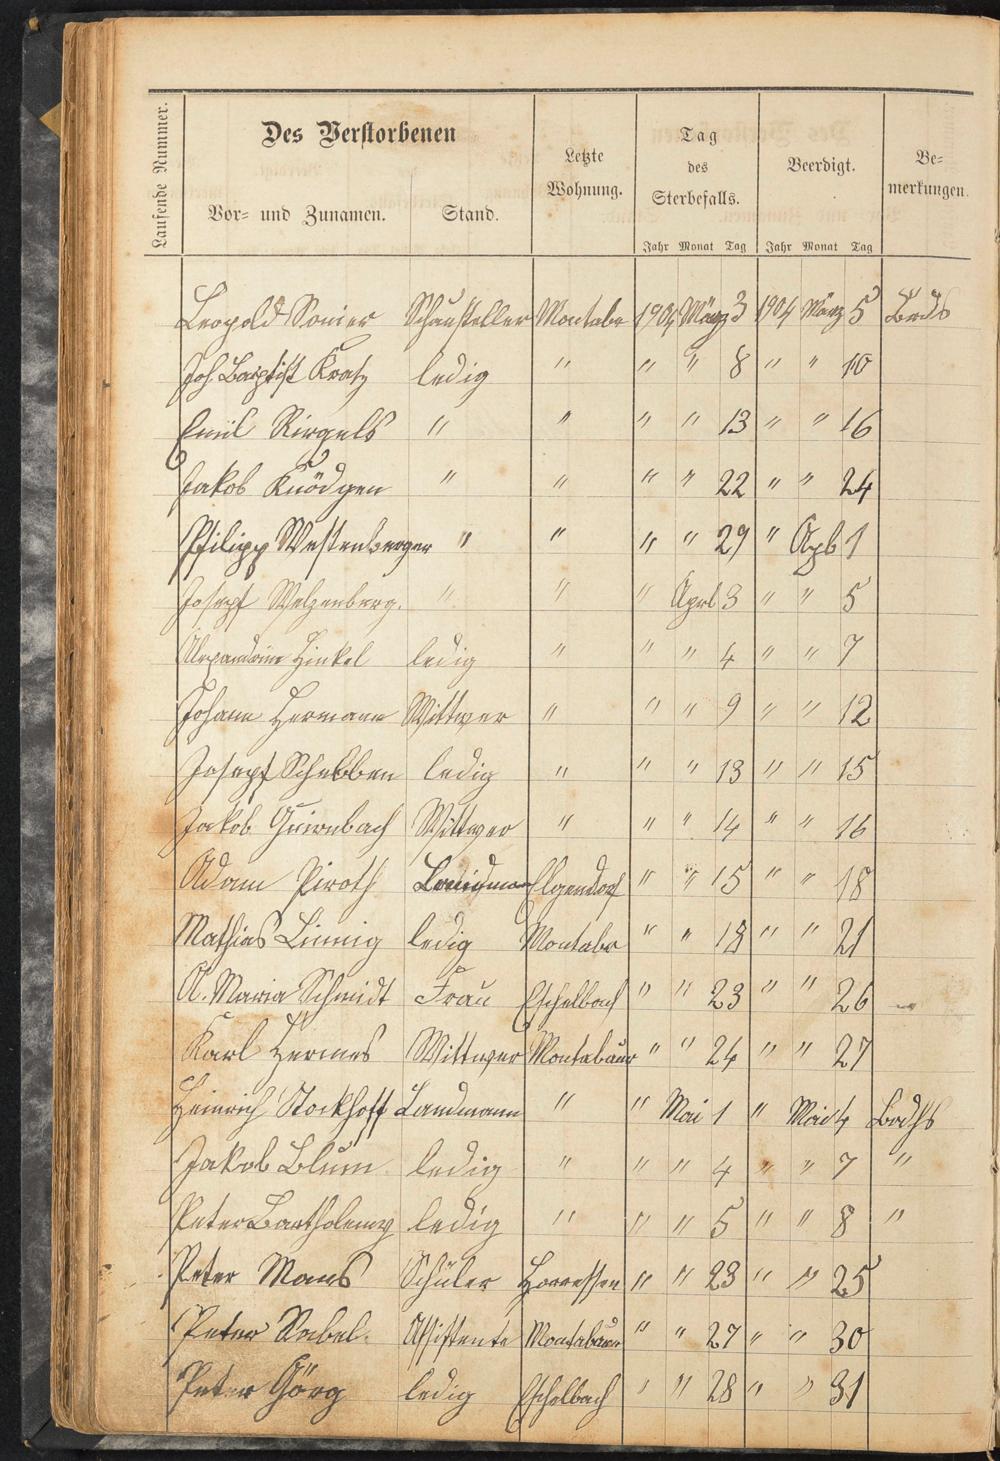 Laufende Nummer.
Des Verstorbenen
Vor- und Zunamen. Stand.
Letzte Wohnung.
Tag des Sterbefalls.
Jahr Monat Tag
Beerdigt.
Jahr Monat Tag
Be-
merkungen.
Leopold Schausteller Montabr 1904 März 3 1904 März 5
Joh. Baptist Kratz ledig " " " 8 " " 10
Emil " " " " 13 " " 16
Jakob Knödgen " " " " 22 " " 24
Philipp Westenberger " " " " 29 " Apl 1
Josef Welzenberg. " " " Aprl 3 " " 5
Alexandrine Hinkel ledig " " " 4 " " 7
Johann Hermann Wittwer " " " 9 " " 12
Josef Schebben ledig " " " 13 " " 15
Jakob Quirnbach Wittwer " " " 14 " " 16
Adam Piroth Elgendorf " " 15 " " 18
Mathias Linnig ledig Montabr " " 18 " " 21
A. Maria Schmidt Frau Eschelbach " " 23 " " 26
Karl Hermes Wittwer Montabaur " " 24 " " 27
Heinrich Stockhoff Landmann " " Mai 1 " Mai 4
Jakob Blum ledig " " " 4 " " 7 "
Peter Bartholemy ledig " " " 5 " " 8 "
Peter Maus Schüler Horressen " " 23 " " 25
Peter Assistente Montabaur " " 27 " " 30
Peter Görg ledig Eschelbach " " 28 " " 31